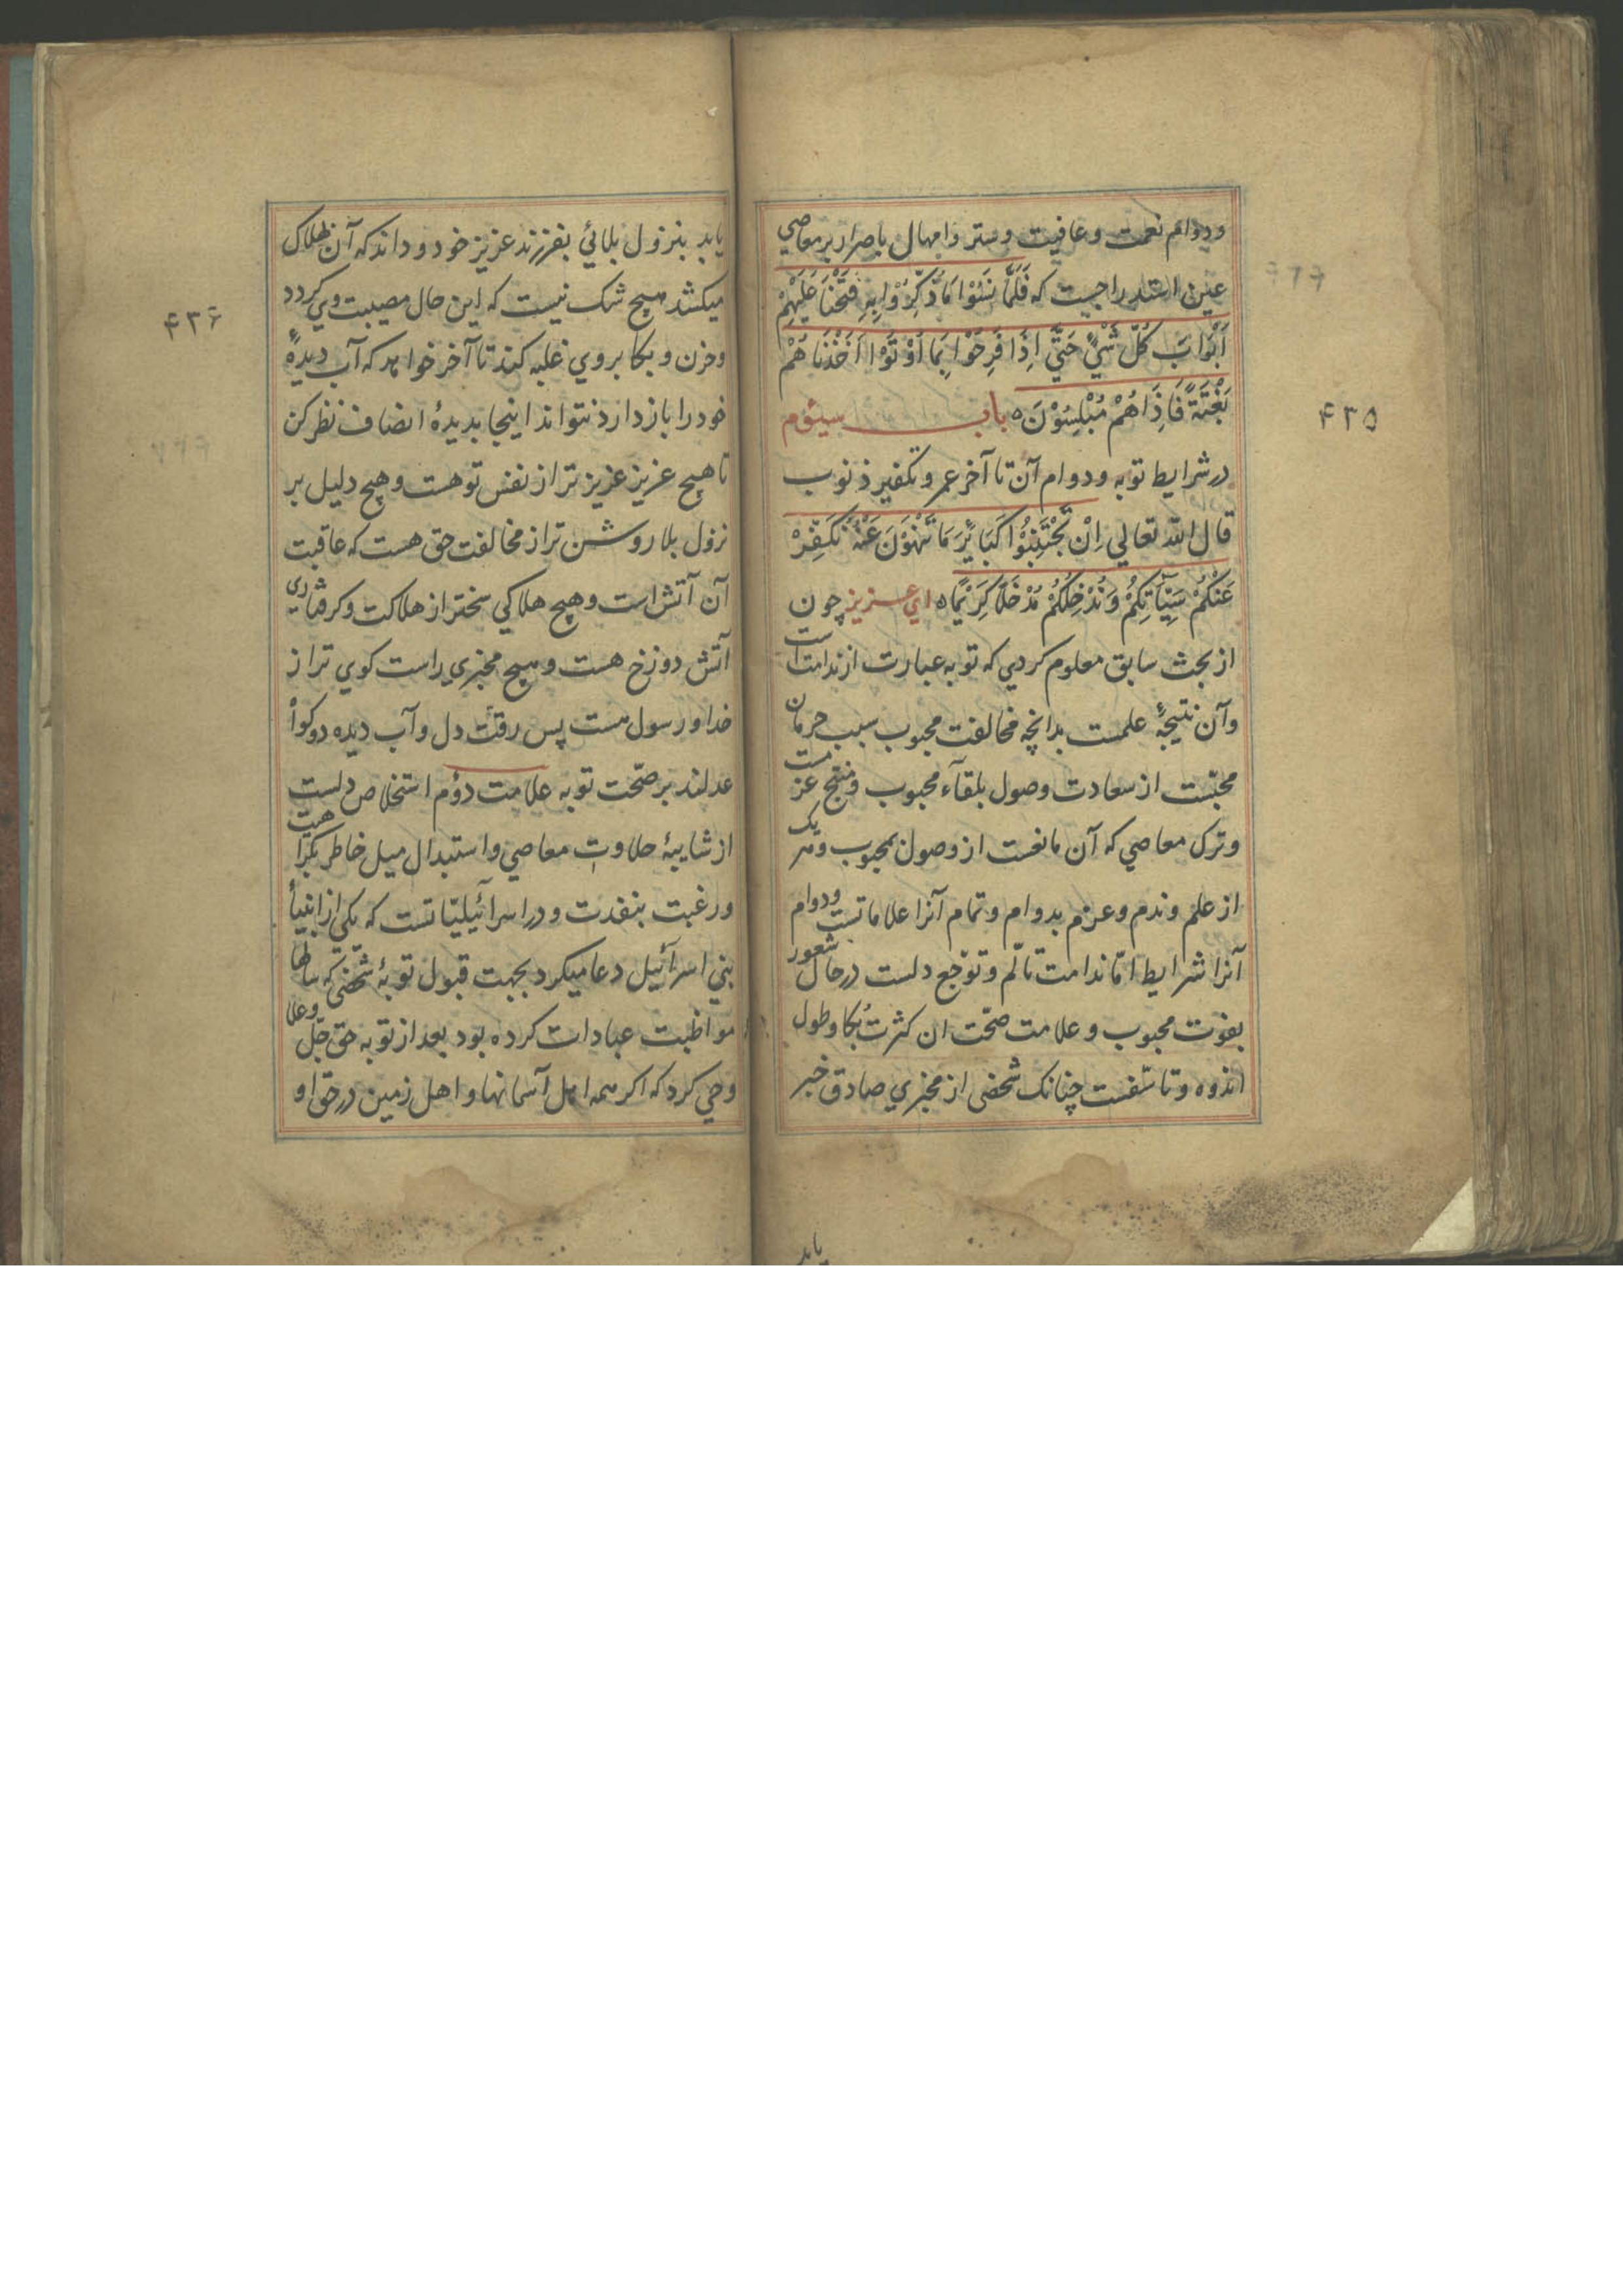 ودوام نعمت وعافیت وستر وامهال باصرار بر معاصي
عین استدراجست که فَلَمَّا نَسُوْا مَا ذُکِّرُوْا بِهِ فَتَحْنَا عَلَیْهِمْ
اَبْوَابَ کُلِّ شَيْءٍ حَتّٰي اِذَا فَرِحُوْا بِمَا اُوْتُوْا اَخَذْنَاهُمْ
بَغْتَةً فَاِذَا هُمْ مُبْلِسُوْنَ ه باب سیئوم
در شرایط توبه ودوام آن تا آخر عمر وتکفیر ذنوب
قال الله تعالي اِنْ تَجْتَنِبُوْا کَبَایِٔرَ مَا تُنْهَوْنَ عَنْهُ نُکَفِّرْ
عَنْکُمْ سَیِّأٰتِکُمْ وَنُدْخِلْکُمْ مُدْخَلًا کَرِیْمًا ه اي عزیز چون
از بحث سابق معلوم کردي که توبه عبارت از ندامت است
وآن نتیجهٔ علمست بدانچه مخالفت محبوب سبب حرمان
محبّست از سعادت وصول بلقآء محبوب ومنتج عزمست
وترک معاصي که آن مانعست از وصول بمحبوب ومر یک
از علم وندم وعزم بدوام وتمام آنرا علاماتست ودوام
آنرا شرایط امّا ندامت تألّم وتوجّع دلست در حال شعور
بفوت محبوب وعلامت صحّت ان کثرت بُکا وطول
اندوه وتاسّفست چنانک شخصی از مخبري صادق خبر
یابد
۴۳۵
یابد بنزول بلائي بفرزند عزیز خود وداند که آن بهلاک
میکشد هیچ شک نیست که این حال مصیبت وي کردد
وحزن وبکا بروي غلبه کند تا آخر خواهد که آب دیدهٔ
خود را باز دارد نتواند اینجا بدیدهٔ انصاف نظر کن
تا هیچ عزیز عزیز تر از نفس تو هست وهیچ دلیل بر
نزول بلا روشن تر از مخالفت حق هست که عاقبت
آن آتش است وهیچ هلاکي سختر از هلاکت وکرفتاري
آتش دوزخ هست وهیچ مخبري راست کوي تر از
خدا ورسول هست پس رقّت دل وآب دیده دو کواْ
عدلند بر صحّت توبه علامت دوٗم استخلاص دلست
از شایبهٔ حلاوتِ معاصي واستبدال میل خاطر بکراهیت
ورغبت بنفرت ودر اسرآئیلیّاتست که یکي از انبیأ
بني اسرآئیل دعا میکرد بجهت قبول توبهٔ شخصی که سالها
مواظبت عبادات کرده بود بعد از توبه حق جلّ وعلا
وحي کرد که اکر همه اهل آسمانها واهل زمین در حقّ او
۴۳۶